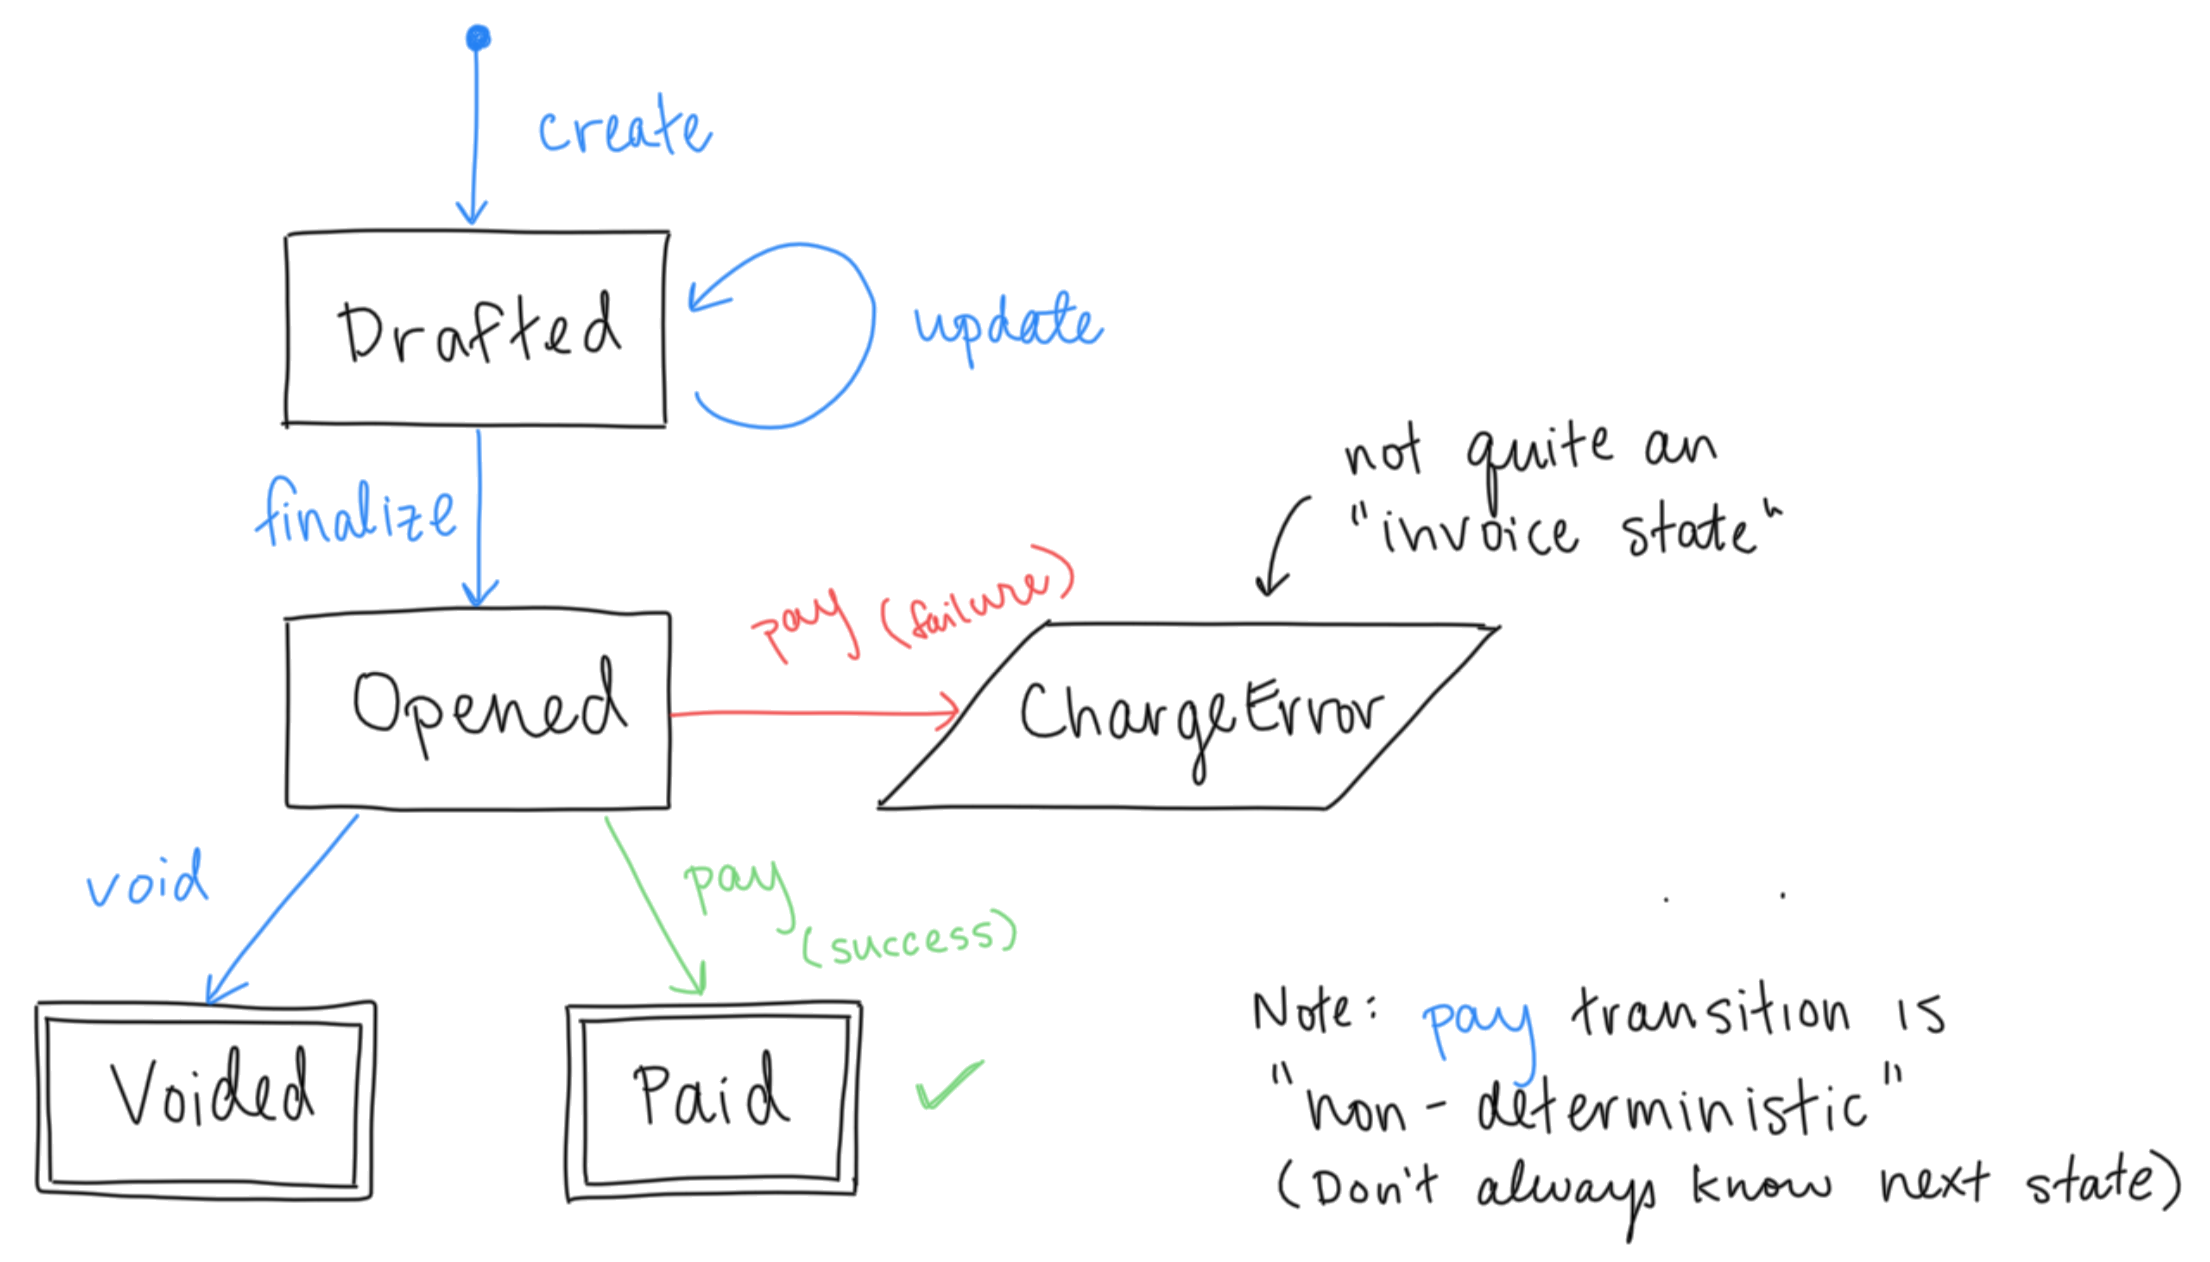 create
Drafted
update
finalize
not quite an
"invoice state"
pay (failure)
Opened
ChargeError
void
pay
(success)
Voided
Paid
Note: pay transition is
"non-deterministic"
(Don't always know next state)